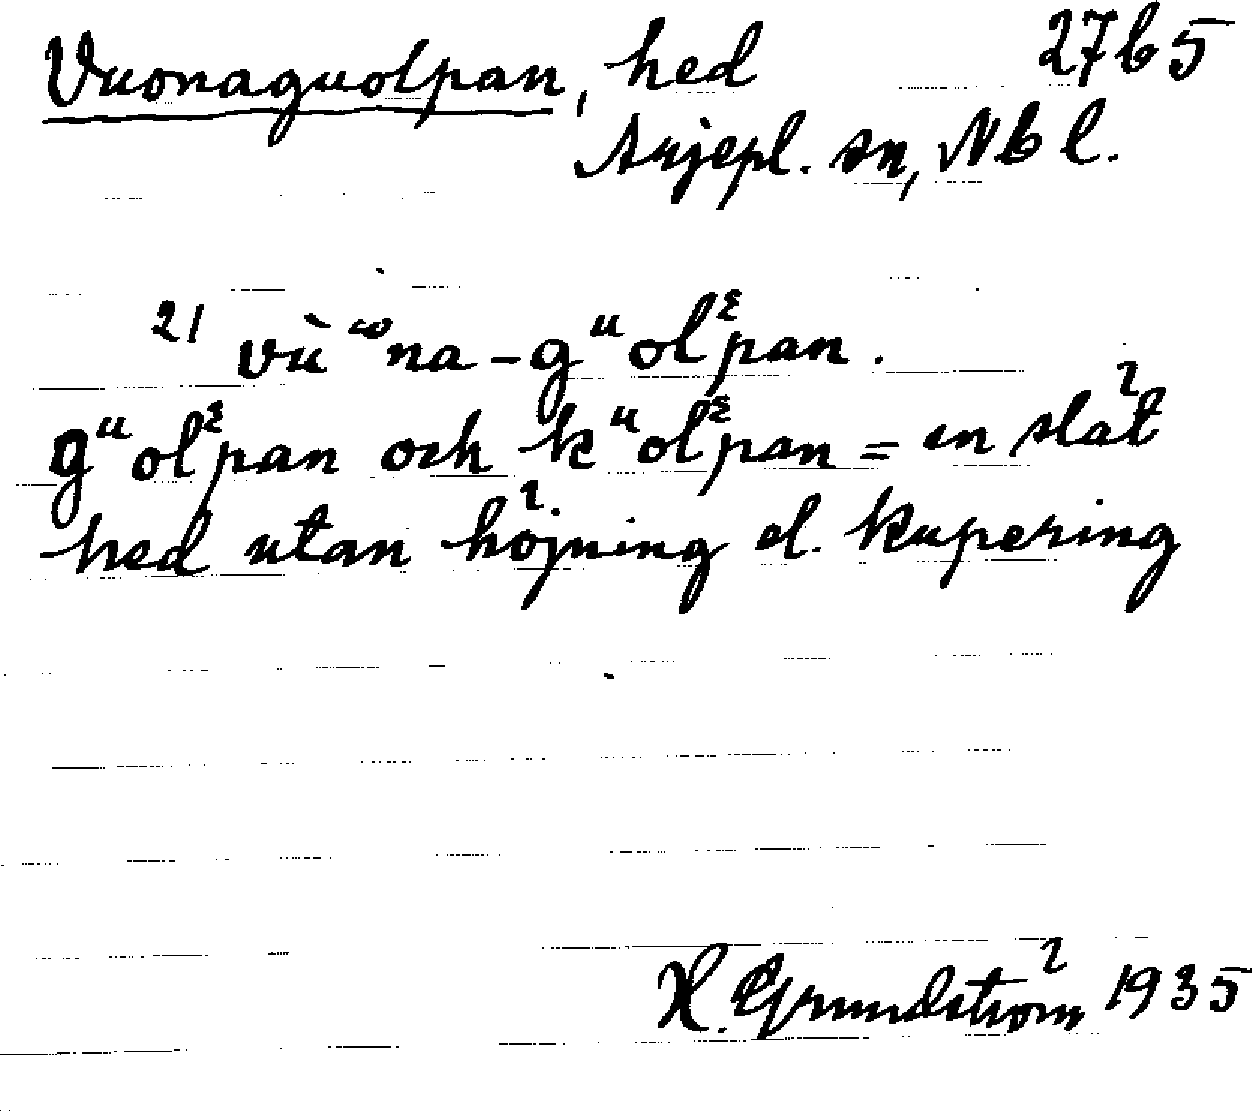 Vuonaguolpan, hed 27b5
Arjepl. sn, Nbl.
21 vù ᵚna-gᵘolᵋpan.
gᵘolᵋpan och kᵘolᵋpan = en slät
hed utan höjning el. kupering
H. Grundström 1935